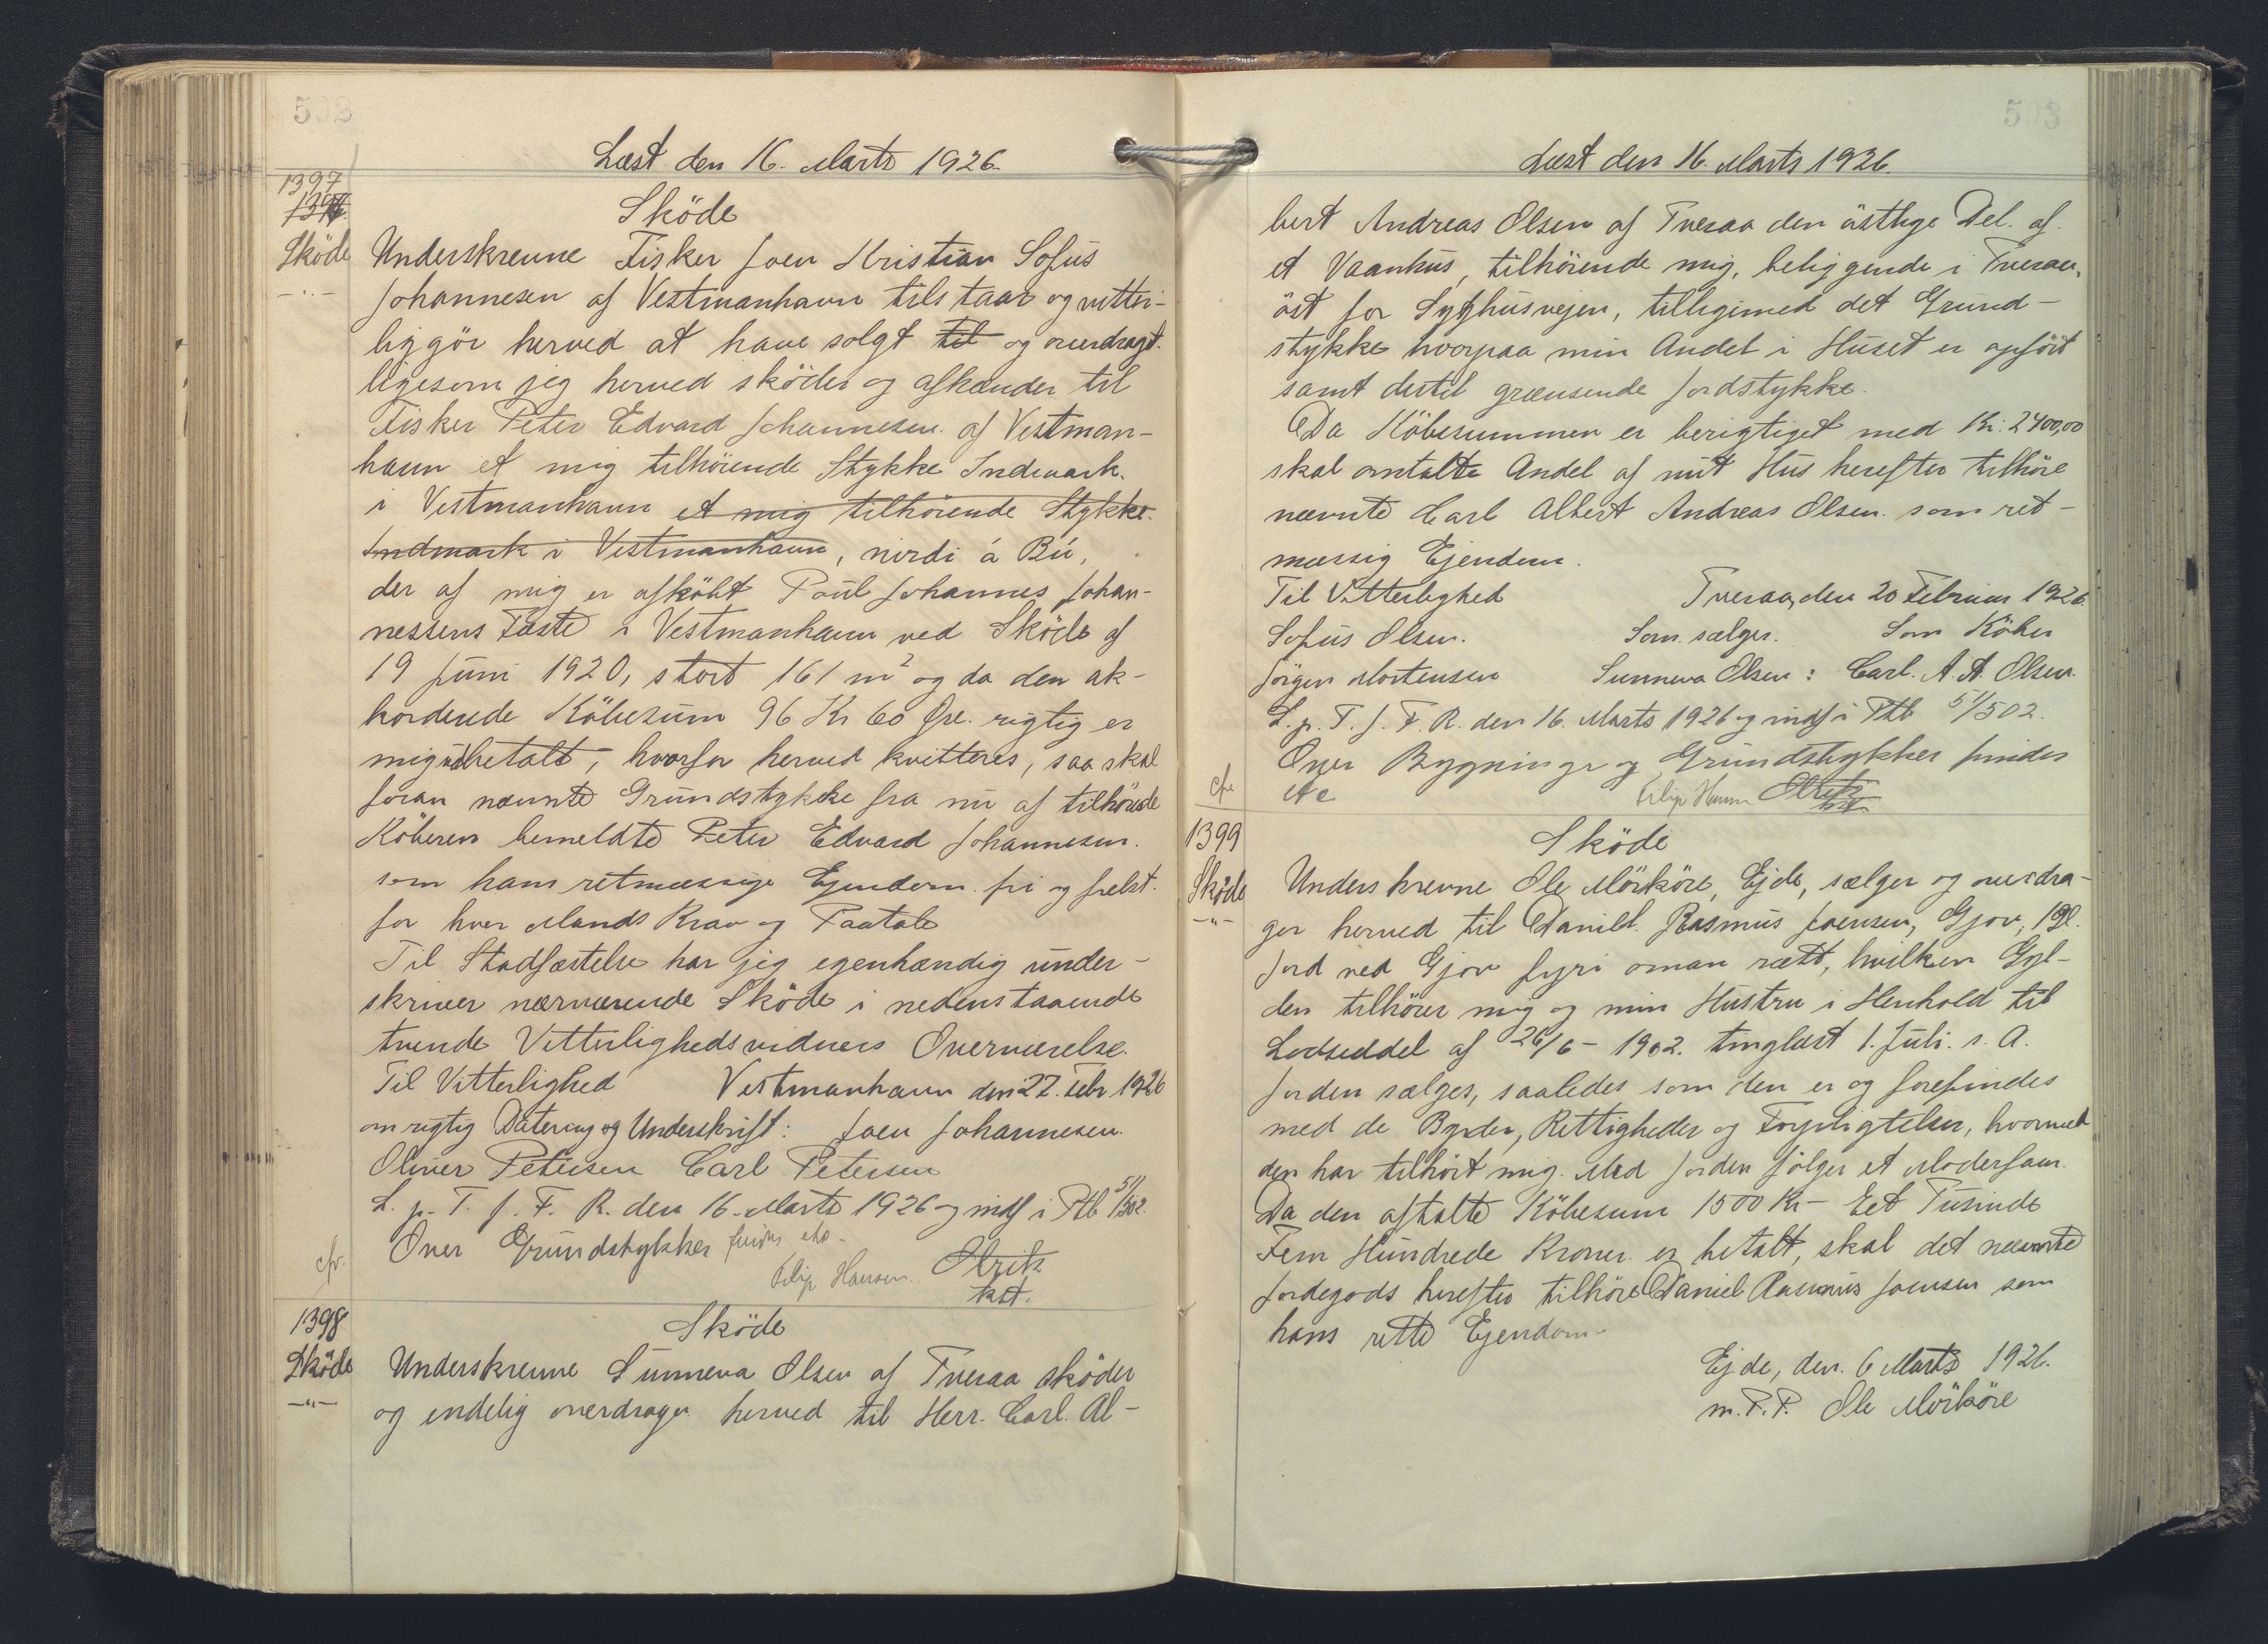 502
Læst den 16. Marts 1926.
1397
Sköde
Sköde
Underskrevne Fisker Joen Kristian Sofus
Johannesen af Vestmanhavn tilstaar og vitter-
liggör herved at have solgt til og overdraget
ligesom jeg herved sköder og afhænder til
Fisker Peter Edvard Johannesen af Vestman-
havn et mig tilhörende Stykke Indmark
i Vestmanhavn et mig tilhörende Stykke
Indmark i Vestmanhavn, nirdi á Bú,
der af mig er afköbt Poul Johannes Johan-
nessens Fæste i Vestmanhavn ved Sköde af
19 Juni 1920, stort 161 m² og da den ak-
korderede Köbesum 96 Kr 60 Øre rigtig er
mig udbetalt, hvorfor herved kvitteres, saa skal
foran nævnte Grundstykke fra nu af tilhöre
Köberen bemeldte Peter Edvard Johannesen
som hans retmæssige Ejendom fri og frelst
for hver Mands Krav og Paatale
Til Stadfæstelse har jeg egenhændig under-
skrevet nærværende Sköde i nedenstaaende
tvende Vitterlighedsvidners Overværelse.
Til Vitterlighed Vestmanhavn den 27. Febr 1926
om rigtig Datering og Underskrift: Joen Johannesen.
Oliver Petersen Carl Petersen
L. p. T. f. F. R. den 16. Marts 1926 og indf i Ptb 51/502.
cfr. Over Grundstykker findes etc.
Filip Hansen. Olrik
kst.
1398
Sköde
Sköde
Underskrevne Sunneva Olsen af Tveraa sköder
og endelig overdrager herved til Herr. Carl. Al-
503
Læst den 16. Marts 1926.
bert Andreas Olsen af Tveraa den östlige Del af
et Vaanhus, tilhörende mig, beliggende i Tveraa,
öst for Sygehusvejen, tilligemed det Grund-
stykke hvorpaa min Andel i Huset er opfört
samt dertil grænsende Jordstykke.
Da Köbesummen er berigtiget med Kr: 2400,00
skal omtalte Andel af mit Hus herefter tilhöre
nævnte Carl Albert Andreas Olsen som ret-
mæssig Ejendom.
Til Vitterlighed Tveraa, den 20 Februar 1926
Sofus Olsen. Som sælger. Som Köber
Jörgen Mortensen Sunneva Olsen: Carl. A. A. Olsen.
L. p. T. f. F. R. den 16. Marts 1926 og indf i Ptb 51/502.
Over Bygninger og Grundstykker findes
cfr etc Filip Hansen Olrik
kst.
1399
Sköde
Sköde
Underskrevne Ole Mörköre, Ejde, sælger og overdra-
ger herved til Daniel Rasmus Joensen, Gjov, 1 Gl.
Jord ved Gjov fyri oman rætt, hvilken Gyl-
den tilhörer mig og min Hustru i Henhold til
Lodseddel af 26/6 - 1902. tinglæst 1. Juli. s. A.
Jorden sælges, saaledes som den er og forefindes
med de Byrder, Rettigheder og Forpligtelser, hvormed
den har tilhört mig. Med Jorden fölger et Moderfaar.
Da den aftalte Köbesum 1500 Kr - Eet Tusinde
Fem Hundrede Kroner er betalt, skal det nævnte
Jordegods herefter tilhöre Daniel Rasmus Joensen som
hans rette Ejendom.
Ejde, den. 6 Marts 1926.
m. P. P. Ole Mörköre